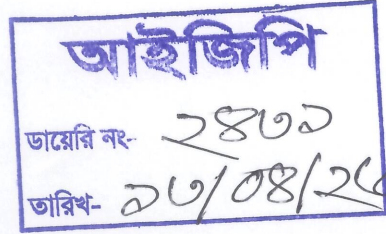 আইজিপি
ডায়েরি নং- ২৪৩১
তারিখ- ১৩/০৪/২৫